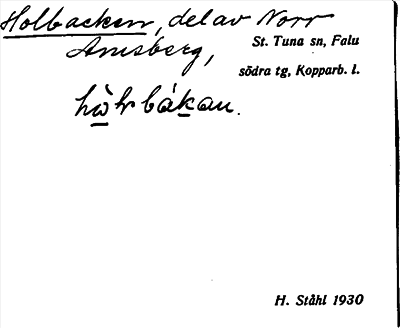 Holbacken, del av Norr
Amsberg,
St. Tuna sn, Falu
södra tg, Kopparb. l.
H. Ståhl 1930